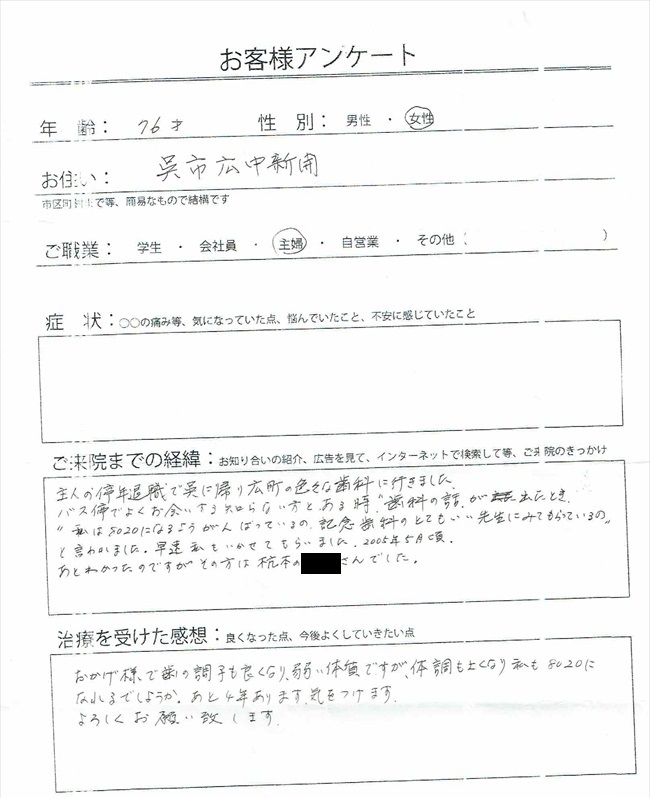 お客様アンケート
年 齢： 76才 性 別： 男性 ・ 女性
お住い： 呉市広中新開
市区町村まで等、簡易なもので結構です
ご職業： 学生 ・ 会社員 ・ 主婦 ・ 自営業 ・ その他（ ）
症 状：○○の痛み等、気になっていた点、悩んでいたこと、不安に感じていたこと
ご来院までの経緯：お知り合いの紹介、広告を見て、インターネットで検索して等、ご来院のきっかけ
主人の停年退職で呉に帰り広町の色々な歯科に行きました。
バス停でよくお会いする知らない方と、ある時、"歯科の話"が 出たとき
"私は8020になるようがんばっているの、記念歯科のとてもいい先生にみてもらっているの"
と言われました。早速私もいかせてもらいました。2005年5月頃。
あとわかったのですがその方は杭本の さんでした。
治療を受けた感想：良くなった点、今後よくしていきたい点
おかげ様で歯の調子も良くなり、弱い体質ですが、体調も良くなり私も8020に
なれるでしょうか。あと4年あります。気をつけます。
よろしくお願い致します。